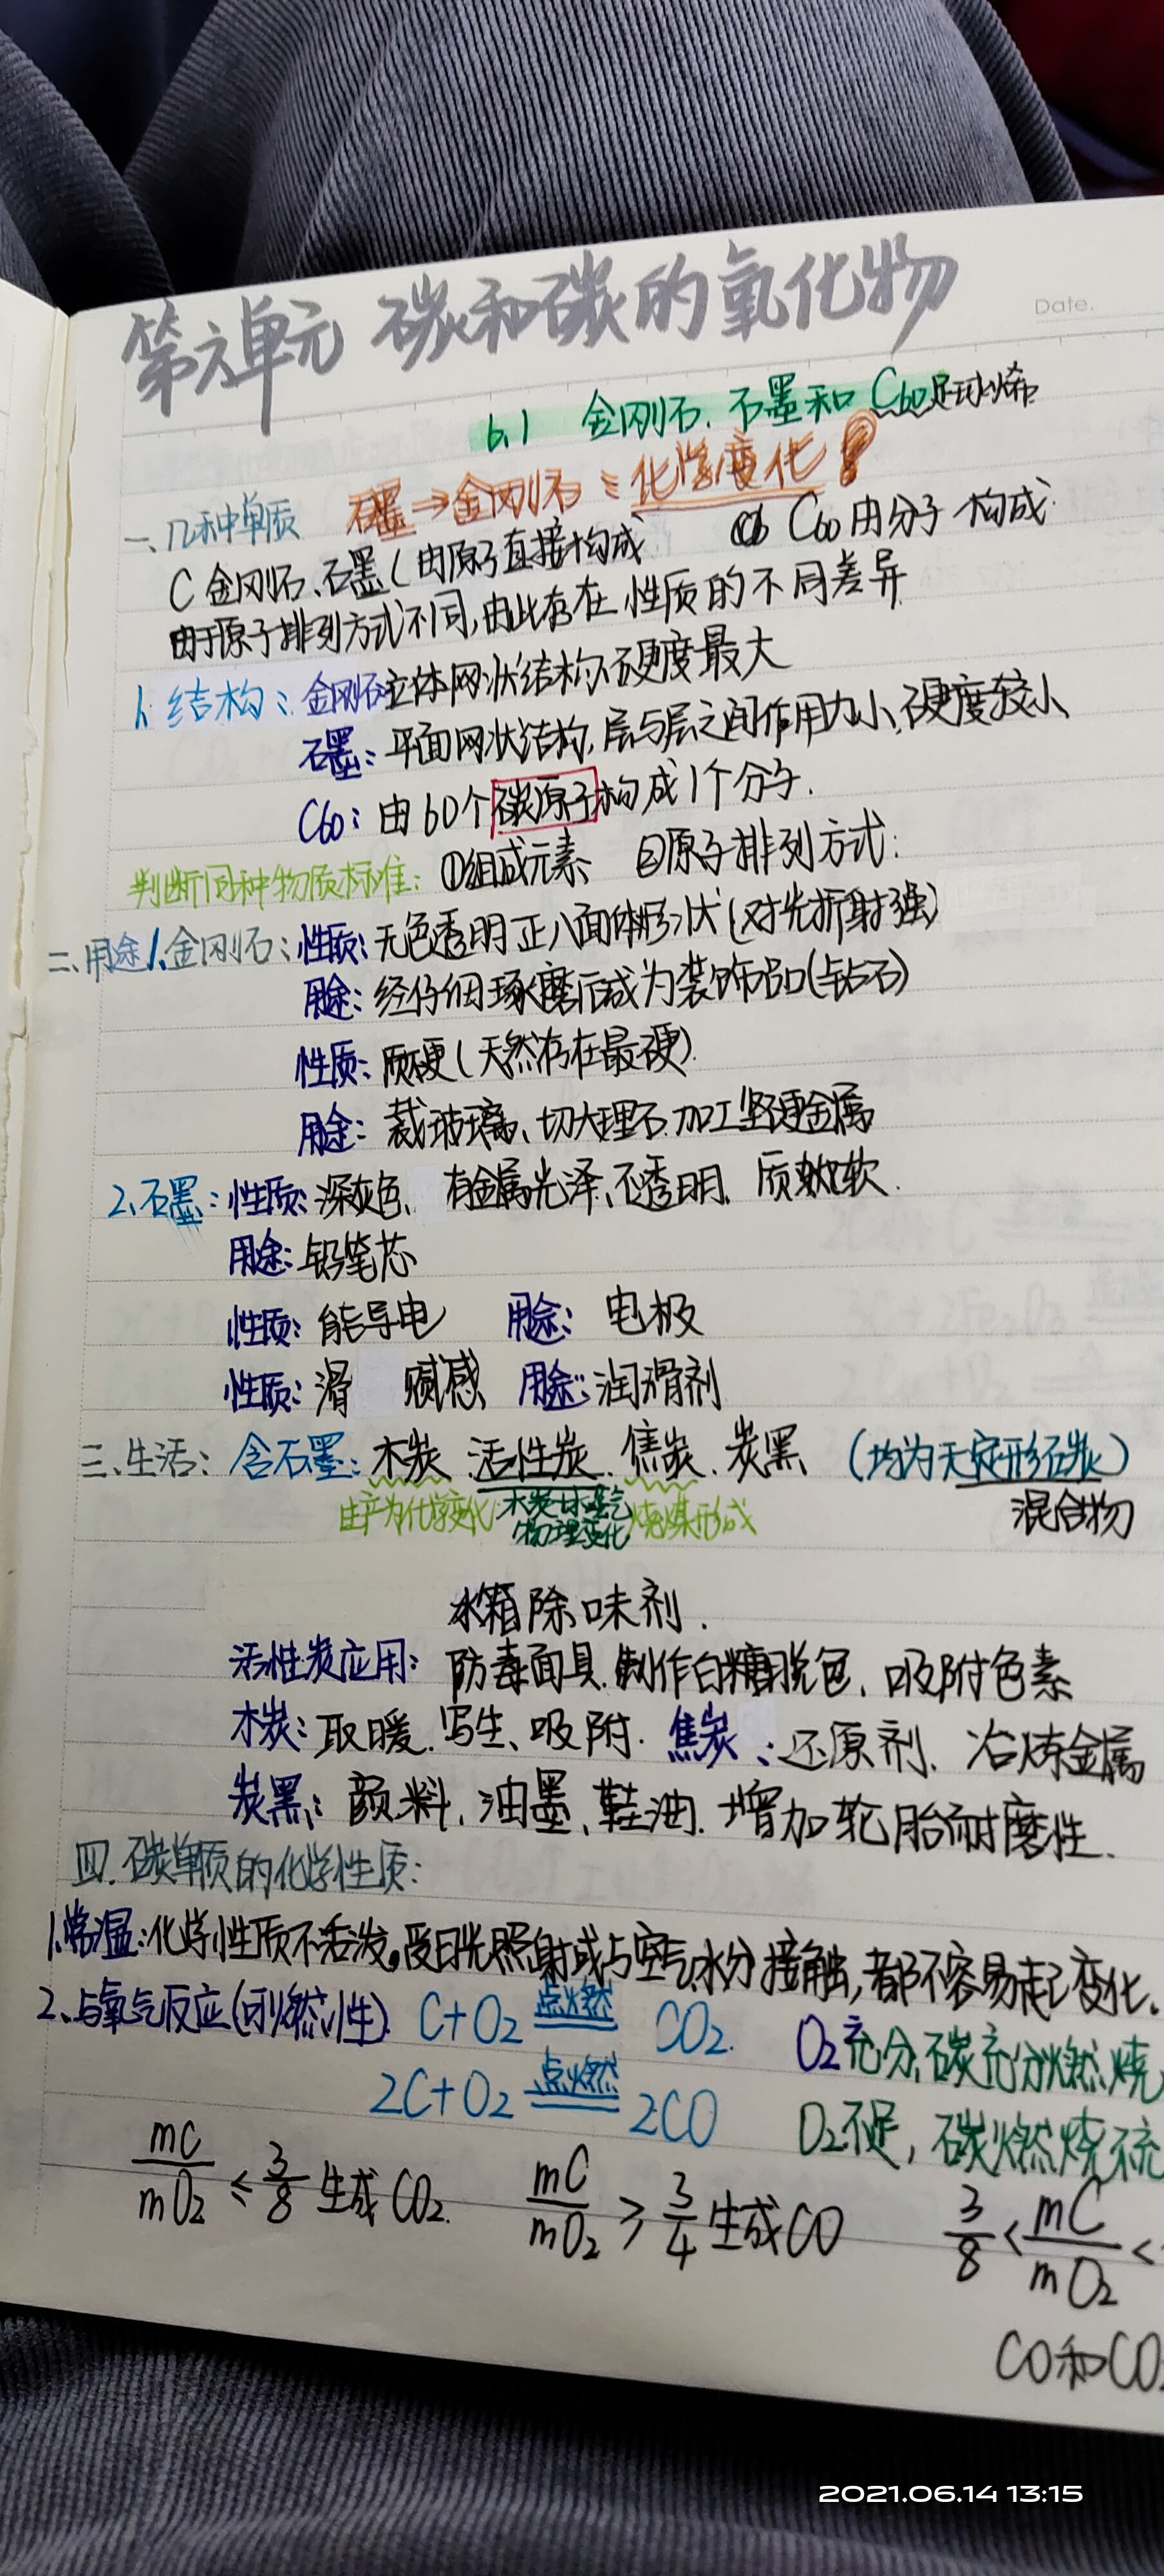 第六单元 碳和碳的氧化物
Date.
6.1 金刚石、石墨和C60
石墨→金刚石：化学变化！
一、几种单质
C 金刚石、石墨(由原子直接构成 C60由分子构成.
由于原子排列方式不同,由此存在性质的不同差异
1.结构：金刚石立体网状结构、硬度最大
石墨：平面网状结构,层与层之间作用力小、硬度较小
C60：由60个碳原子构成1个分子.
判断同种物质标准：①组成元素 ②原子排列方式：
二、用途1.金刚石：性质：无色透明正八面体形状(对光折射强)
用途：经仔细琢磨后成为装饰品(钻石)
性质：质硬(天然存在最硬)
用途：裁玻璃、切大理石、加工坚硬金属
2.石墨：性质：深灰色、有金属光泽、不透明、质软
用途：铅笔芯
性质：能导电 用途：电极
性质：滑腻感 用途：润滑剂
三、生活：含石墨：木炭、活性炭、焦炭、炭黑 (均为无定形石炭)
生产为化学变化 木炭+水蒸气 烧煤形成 混合物
物理变化
冰箱除味剂.
活性炭应用：防毒面具、制作白糖脱色、吸附色素
木炭：取暖、写生、吸附. 焦炭：还原剂、冶炼金属
炭黑：颜料、油墨、鞋油、增加轮胎耐磨性.
四.碳单质的化学性质：
1.常温：化学性质不活泼。受日光照射或与空气、水分接触,都不容易起变化.
2.与氧气反应(可燃性) C+O2 点燃 CO2. O2充分,碳充分燃烧
2C+O2 点燃 2CO O2不足,碳燃烧不充
mC/mO2 ≤ 3/8 生成CO2. mC/mO2 ≥ 3/4 生成CO 3/8 < mC/mO2 <
CO和CO
2021.06.14 13:15